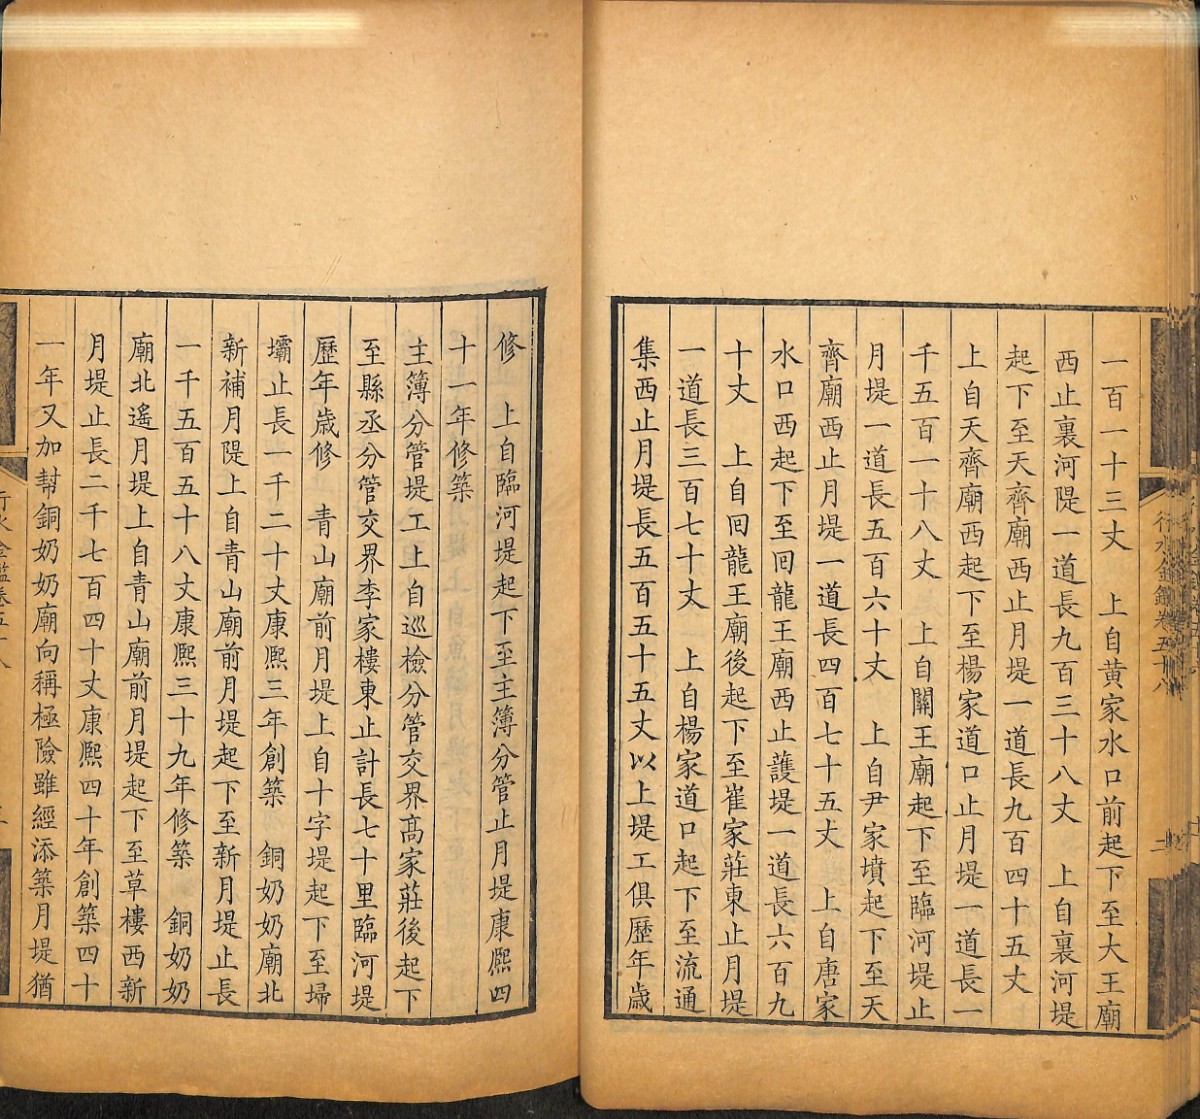 一百一十三丈　上自黄家水口前起下至大王廟
西止裏河隄一道長九百三十八丈　上自裏河堤
起下至天齊廟西止月堤一道長九百四十五丈
上自天齊廟西起下至楊家道口止月堤一道長一
千五百一十八丈　上自關王廟起下至臨河堤止
月堤一道長五百六十丈　上自尹家墳起下至天
齊廟西止月堤一道長四百七十五丈　上自唐家
水口西起下至回龍王廟西止護堤一道長六百九
十丈　上自回龍王廟後起下至崔家莊東止月堤
一道長三百七十丈　上自楊家道口起下至流通
集西止月堤長五百五十五丈以上堤工俱歷年歲
修　上自臨河堤起下至主簿分管止月堤康熈四
十一年修築
主簿分管堤工上自巡檢分管交界髙家莊後起下
至縣丞分管交界李家樓東止計長七十里臨河堤
歷年歲修　青山廟前月堤上自十字堤起下至埽
壩止長一千二十丈康熈三年創築　銅奶奶廟北
新補月隄上自青山廟前月堤起下至新月堤止長
一千五百五十八丈康熈三十九年修築　銅奶奶
廟北遙月堤上自青山廟前月堤起下至草樓西新
月堤止長二千七百四十丈康熈四十年創築四十
一年又加幫銅奶奶廟向稱極險雖經添築月堤猶
行水金鑑卷五十八